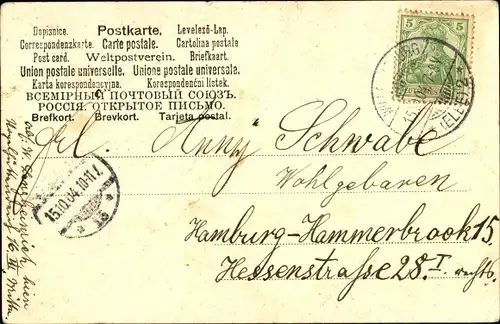 Dopisnice. Postkarte. Levelező-Lap.
Correspondenzkarte. Carte postale. Cartolina postale
Post card. Weltpostverein. Briefkaart.
Union postale universelle. Unione postale universale.
Karta korespondencyjna. Korespondenční lístek.
ВСЕМІРНЫЙ ПОЧТОВЫЙ СОЮЗЪ.
РОССІЯ. ОТКРЫТОЕ ПИСЬМО.
Brefkort. Brevkort. Tarjeta postal.
5 5
Frl. Anny Schwabe
Wohlgebaren
Hamburg-Hammerbrook 15
Hessenstrasse 28. I. rechts.
15.10.04. 10-11 V.
abs. W. hier